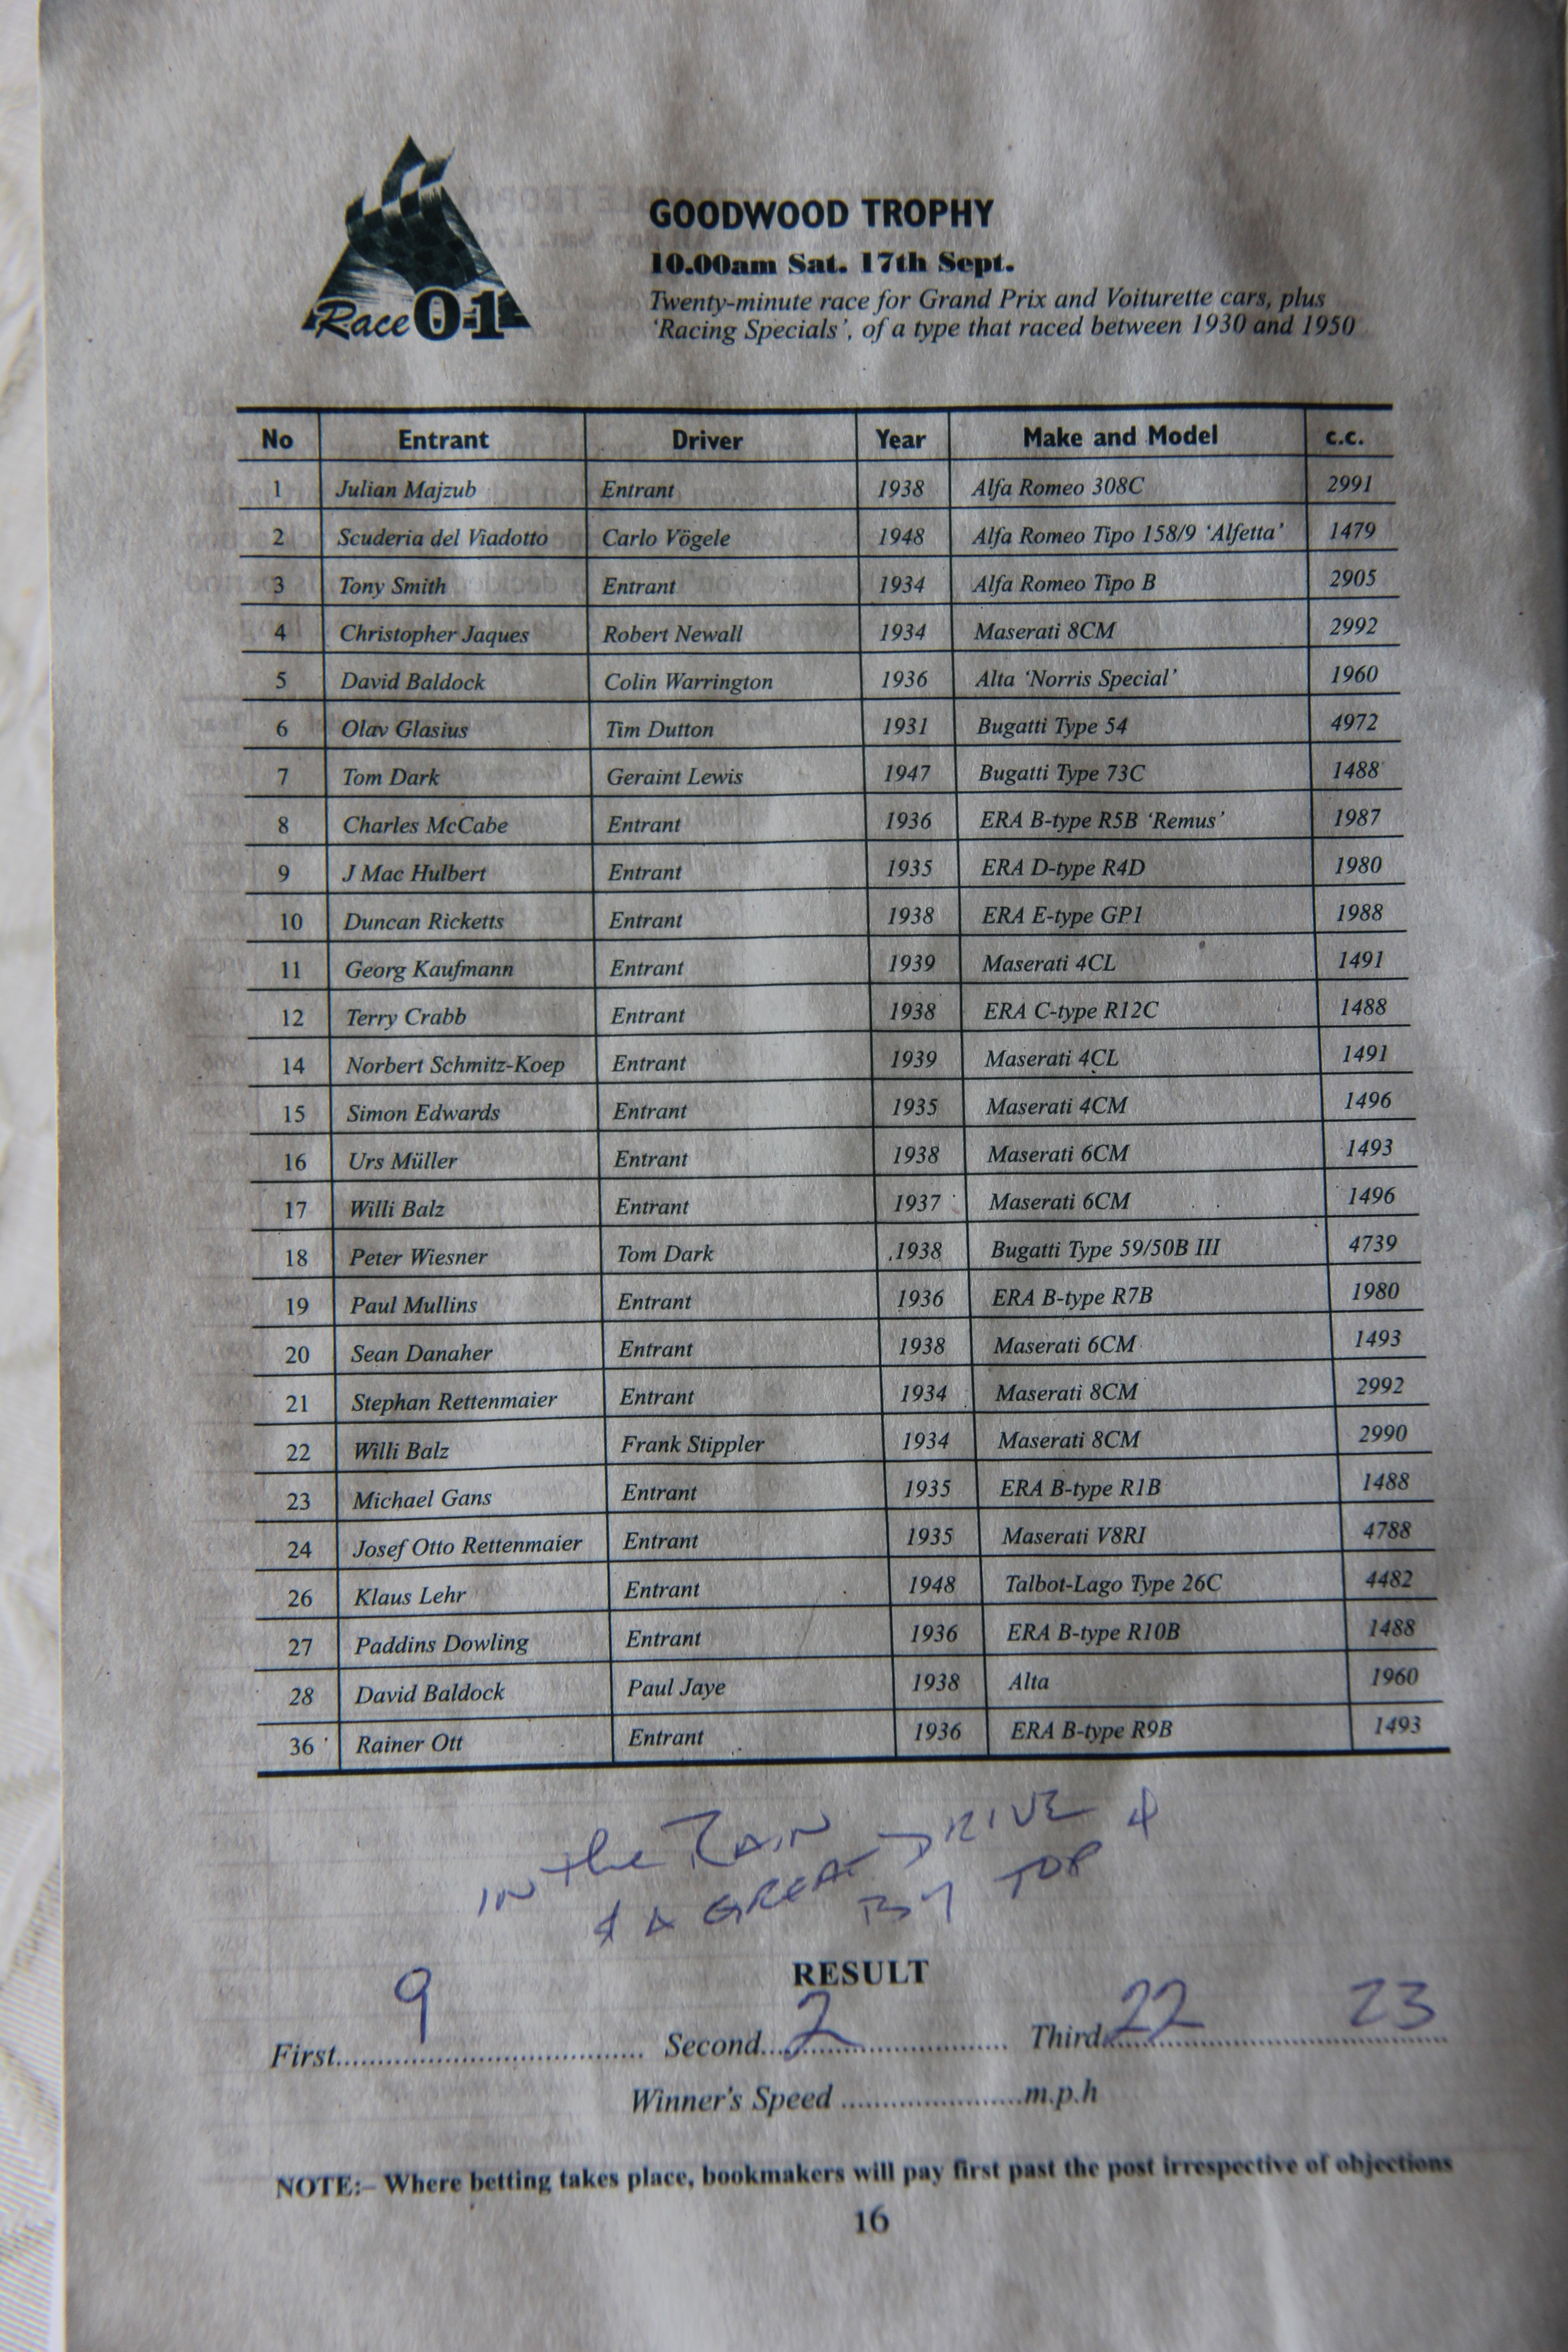 GOODWOOD TROPHY
10.00am Sat. 17th Sept.
Twenty-minute race for Grand Prix and Voiturette cars, plus
'Racing Specials', of a type that raced between 1930 and 1950
Race 01
No Entrant Driver Year Make and Model c.c.
1 Julian Majzub Entrant 1938 Alfa Romeo 308C 2991
2 Scuderia del Viadotto Carlo Vögele 1948 Alfa Romeo Tipo 158/9 'Alfetta' 1479
3 Tony Smith Entrant 1934 Alfa Romeo Tipo B 2905
4 Christopher Jaques Robert Newall 1934 Maserati 8CM 2992
5 David Baldock Colin Warrington 1936 Alta 'Norris Special' 1960
6 Olav Glasius Tim Dutton 1931 Bugatti Type 54 4972
7 Tom Dark Geraint Lewis 1947 Bugatti Type 73C 1488
8 Charles McCabe Entrant 1936 ERA B-type R5B 'Remus' 1987
9 J Mac Hulbert Entrant 1935 ERA D-type R4D 1980
10 Duncan Ricketts Entrant 1938 ERA E-type GP1 1988
11 Georg Kaufmann Entrant 1939 Maserati 4CL 1491
12 Terry Crabb Entrant 1938 ERA C-type R12C 1488
14 Norbert Schmitz-Koep Entrant 1939 Maserati 4CL 1491
15 Simon Edwards Entrant 1935 Maserati 4CM 1496
16 Urs Müller Entrant 1938 Maserati 6CM 1493
17 Willi Balz Entrant 1937 Maserati 6CM 1496
18 Peter Wiesner Tom Dark 1938 Bugatti Type 59/50B III 4739
19 Paul Mullins Entrant 1936 ERA B-type R7B 1980
20 Sean Danaher Entrant 1938 Maserati 6CM 1493
21 Stephan Rettenmaier Entrant 1934 Maserati 8CM 2992
22 Willi Balz Frank Stippler 1934 Maserati 8CM 2990
23 Michael Gans Entrant 1935 ERA B-type R1B 1488
24 Josef Otto Rettenmaier Entrant 1935 Maserati V8RI 4788
26 Klaus Lehr Entrant 1948 Talbot-Lago Type 26C 4482
27 Paddins Dowling Entrant 1936 ERA B-type R10B 1488
28 David Baldock Paul Jaye 1938 Alta 1960
36 Rainer Ott Entrant 1936 ERA B-type R9B 1493
IN the RAIN
& A GREAT DRIVE
BY TOP 4
RESULT
First 9 Second 2 Third 22 23
Winner's Speed ........................m.p.h
NOTE:– Where betting takes place, bookmakers will pay first past the post irrespective of objections
16